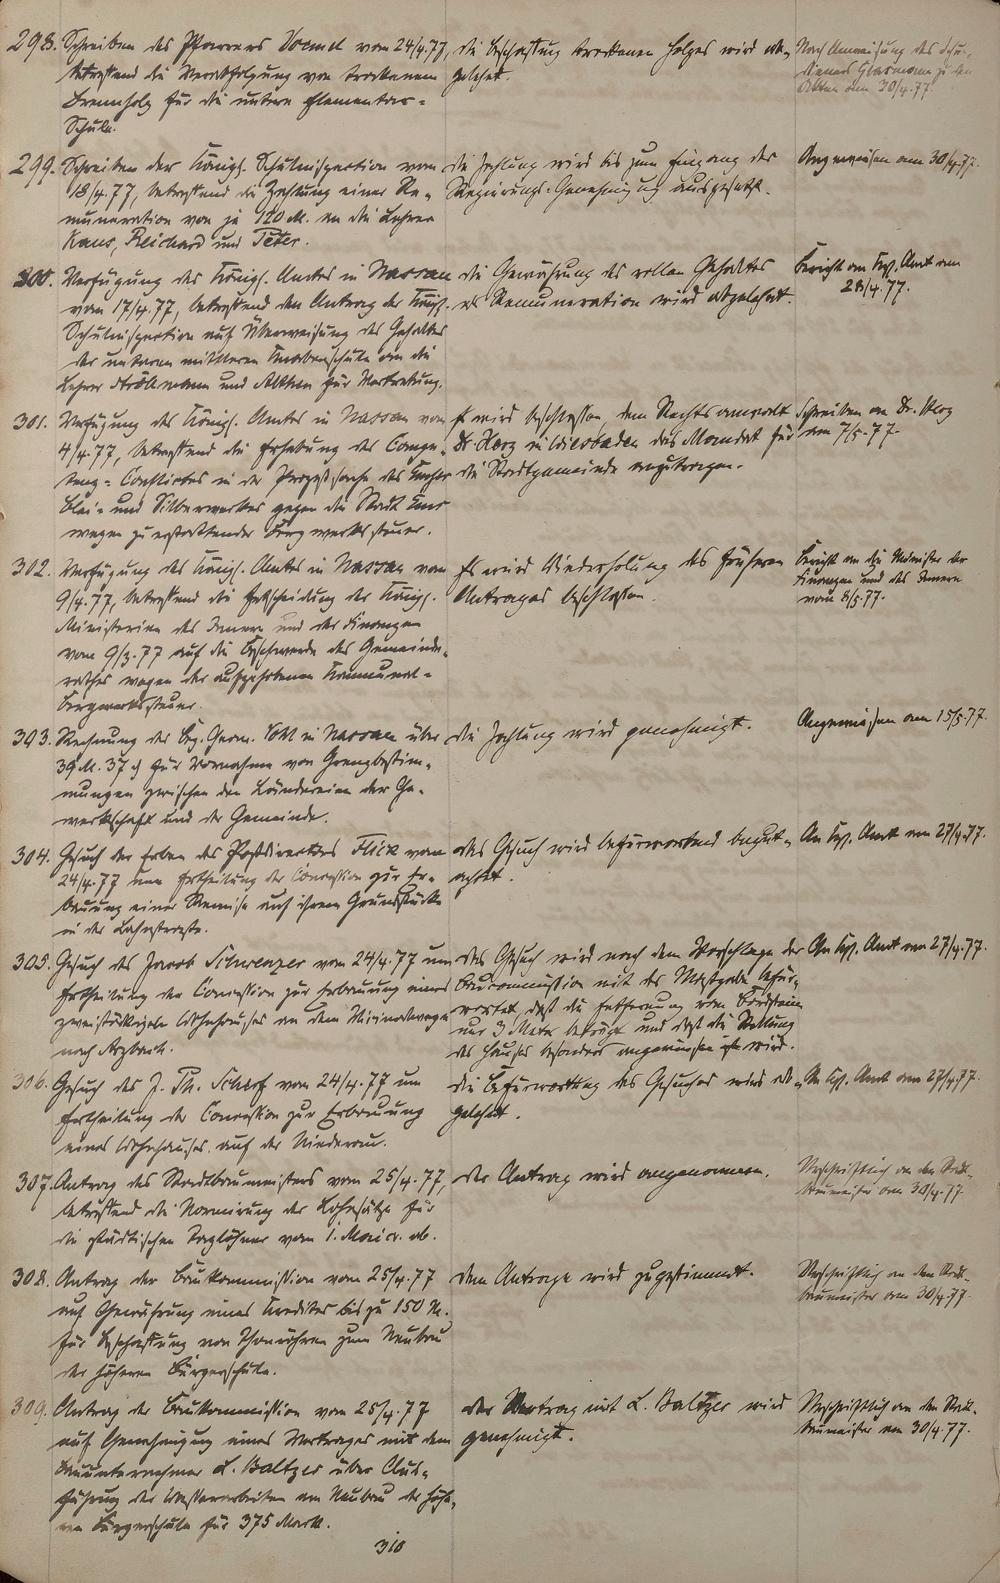 298. Schreiben des Pfarrers Vomel vom 24/4.77,
betreffend die Verabfolgung von trockenem
Brennholz für die untere Elementar-
Schule.
die Beschaffung trockenen Holzes wird ab-
gelehnt.
Nach Anweisung des Schu-
dieners Glasmann zu den
Akten am 30/4.77.
299. Schreiben der Königl. Schulinspection vom
18/4.77, betreffend die Zahlung einer Re-
muneration von je 120 M. an die Lehrer
Kaus, Reichard und Peter.
die Zahlung wird bis zum Eingang der
Regierungs-Genehmigung ausgesetzt.
Angewiesen am 30/4.77.
300. Verfügung des Königl. Amtes in Nassau
vom 17/4.77, betreffend den Antrag der Königl.
Schulinspection auf Überweisung des Gehaltes
der unteren mittleren Knabenschule an die
Lehrer Ströhmann und Altham für Vertretung.
die Gewährung des vollen Gehaltes
als Remuneration wird abgelehnt.
Bericht an Kgl. Amt am
28/4.77.
301. Verfügung des Königl. Amtes in Nassau vom
4/4.77, betreffend die Erhebung des Compe-
tenz-Conflictes in der Prozeßsache des Emser
Blei- und Silberwerkes gegen die Stadt Ems
wegen zu erstattender Bergwerkssteuer.
Es wird beschlossen, dem Rechtsanwalt
Dr. Herz in Wiesbaden das Mandat für
die Stadtgemeinde anzutragen.
Schreiben an Dr. Herz
am 7/5.77.
302. Verfügung des Königl. Amtes in Nassau vom
9/4.77, betreffend die Entscheidung der Königl.
Ministerien des Innern und der Finanzen
vom 9/3.77 auf die Beschwerde des Gemeinde-
rathes wegen der aufgehobenen Kommunal-
Bergwerkssteuer.
Es wird Wiederholung des früheren
Antrages beschlossen.
Bericht an die Minister der
Finanzen und des Innern
vom 8/5.77.
303. Rechnung des Geom. Vohl in Nassau über
39 M. 37 ₰ für Vornahme von Grenzbestim-
mungen zwischen den Ländereien der Ge-
werkschaft und der Gemeinde.
die Zahlung wird genehmigt.
Angewiesen am 15/5.77.
304. Gesuch der Erben des Postdirectors Flick vom
24/4.77 um Ertheilung der Concession zur Er-
bauung einer Remise auf ihrem Grundstücke
in der Lahnstraße.
das Gesuch wird befürwortend begut-
achtet.
An Kgl. Amt am 27/4.77.
305. Gesuch des Jacob Schwenzer vom 24/4.77 um
Ertheilung der Concession zur Erbauung eines
zweistöckigen Wohnhauses an dem Vicinalwege
nach Arzbach.
das Gesuch wird nach dem Vorschlage der
Baucommission mit der Maßgabe befür-
wortet, daß die Entfernung vom Bordstein
nur 3 Meter beträgt und daß die Stellung
des Hauses besonders angewiesen wird.
An Kgl. Amt am 27/4.77.
306. Gesuch des J. Ph. Scharf vom 24/4.77 um
Ertheilung der Concession zur Erbauung
eines Wohnhauses auf der Niederau.
die Befürwortung des Gesuches wird ab-
gelehnt.
An Kgl. Amt am 27/4.77.
307. Antrag des Stadtbaumeisters vom 25/4.77,
betreffend die Normirung der Lohnsätze für
die städtischen Taglöhner vom 1. Mai cr. ab.
der Antrag wird angenommen.
Urschriftlich an den Stadt-
baumeister am 30/4.77.
308. Antrag der Baukommission vom 25/4.77
auf Gewährung eines Kredites bis zu 150 M.
für Beschaffung von Thonröhren zum Neubau
der höheren Bürgerschule.
dem Antrage wird zugestimmt.
Urschriftlich an den Stadt-
baumeister am 30/4.77.
309. Antrag der Baukommission vom 25/4.77
auf Genehmigung eines Vertrages mit dem
Bauunternehmer L. Baltzer über Aus-
führung der Wasserarbeiten am Neubau der höhe-
ren Bürgerschule für 375 Mark.
der Vertrag mit L. Baltzer wird
genehmigt.
Urschriftlich an den Stadt-
baumeister am 30/4.77.
310